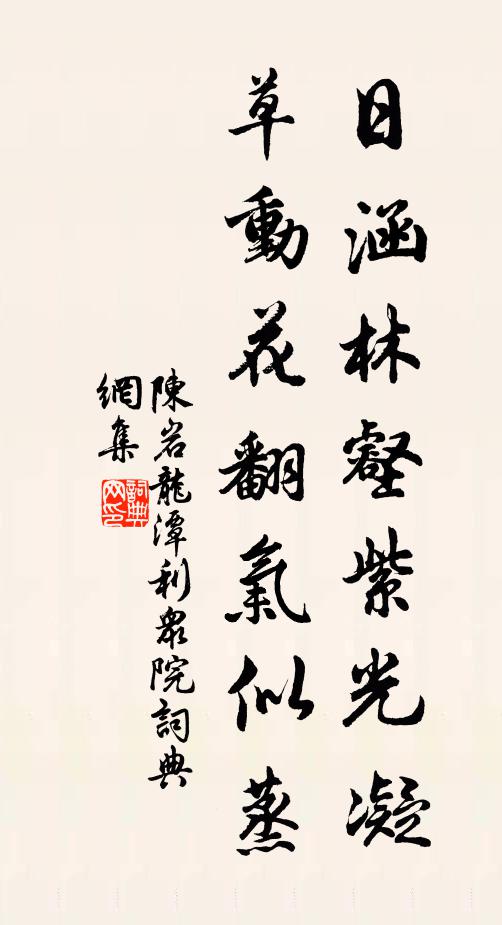 日涵林壑紫光凝
草動花翻氣似蒸
陳岩龍潭利衆院詞典
網集
詞典
网印